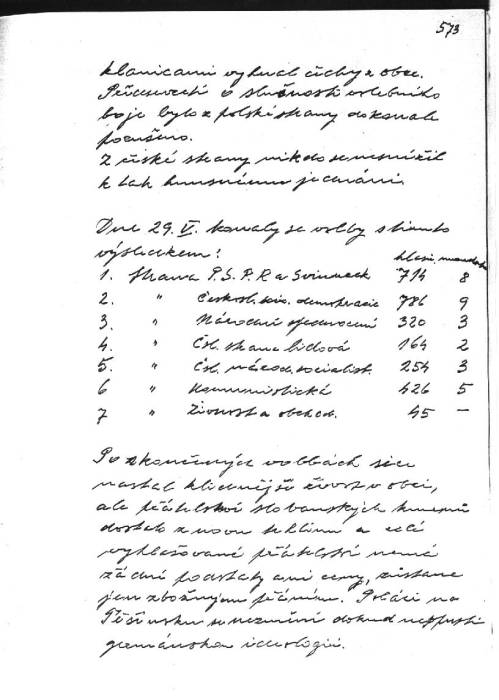 573
klanicami vyhnal Čechy z obce.
Přísloví o slušnosti volebního
boje bylo z polské strany dokonale
porušeno.
Z české strany nikdo se nesnížil
k tak hnusnému jednání.
Dne 29. V. konaly se volby s tímto
výsledkem: hlasů mandátů
1. Strana P.S.P.R a Svinneck 714 8
2. " Českosl. soc. demokracie 786 9
3. " Národní sjednocení 320 3
4. " Čsl. strana lidová 164 2
5. " Čsl. národ. socialist. 254 3
6 " Komunistická 426 5
7 " Živnost a obchod. 45 –
Po skončených volbách sice
nastal klidnější život v obci,
ale přátelství slovanských kmenů
dostalo znovu trhlinu a celé
vyhlašované přátelství nemá
žádné podstaty ani ceny, zůstane
jen zbožným přáním. Poláci na
Těšínsku se nezmění dokud nepustí
germánskou ideologii.